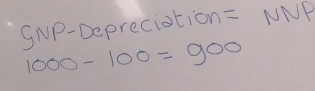 GNP-Depreciation = NNP
1000 - 100 = 900